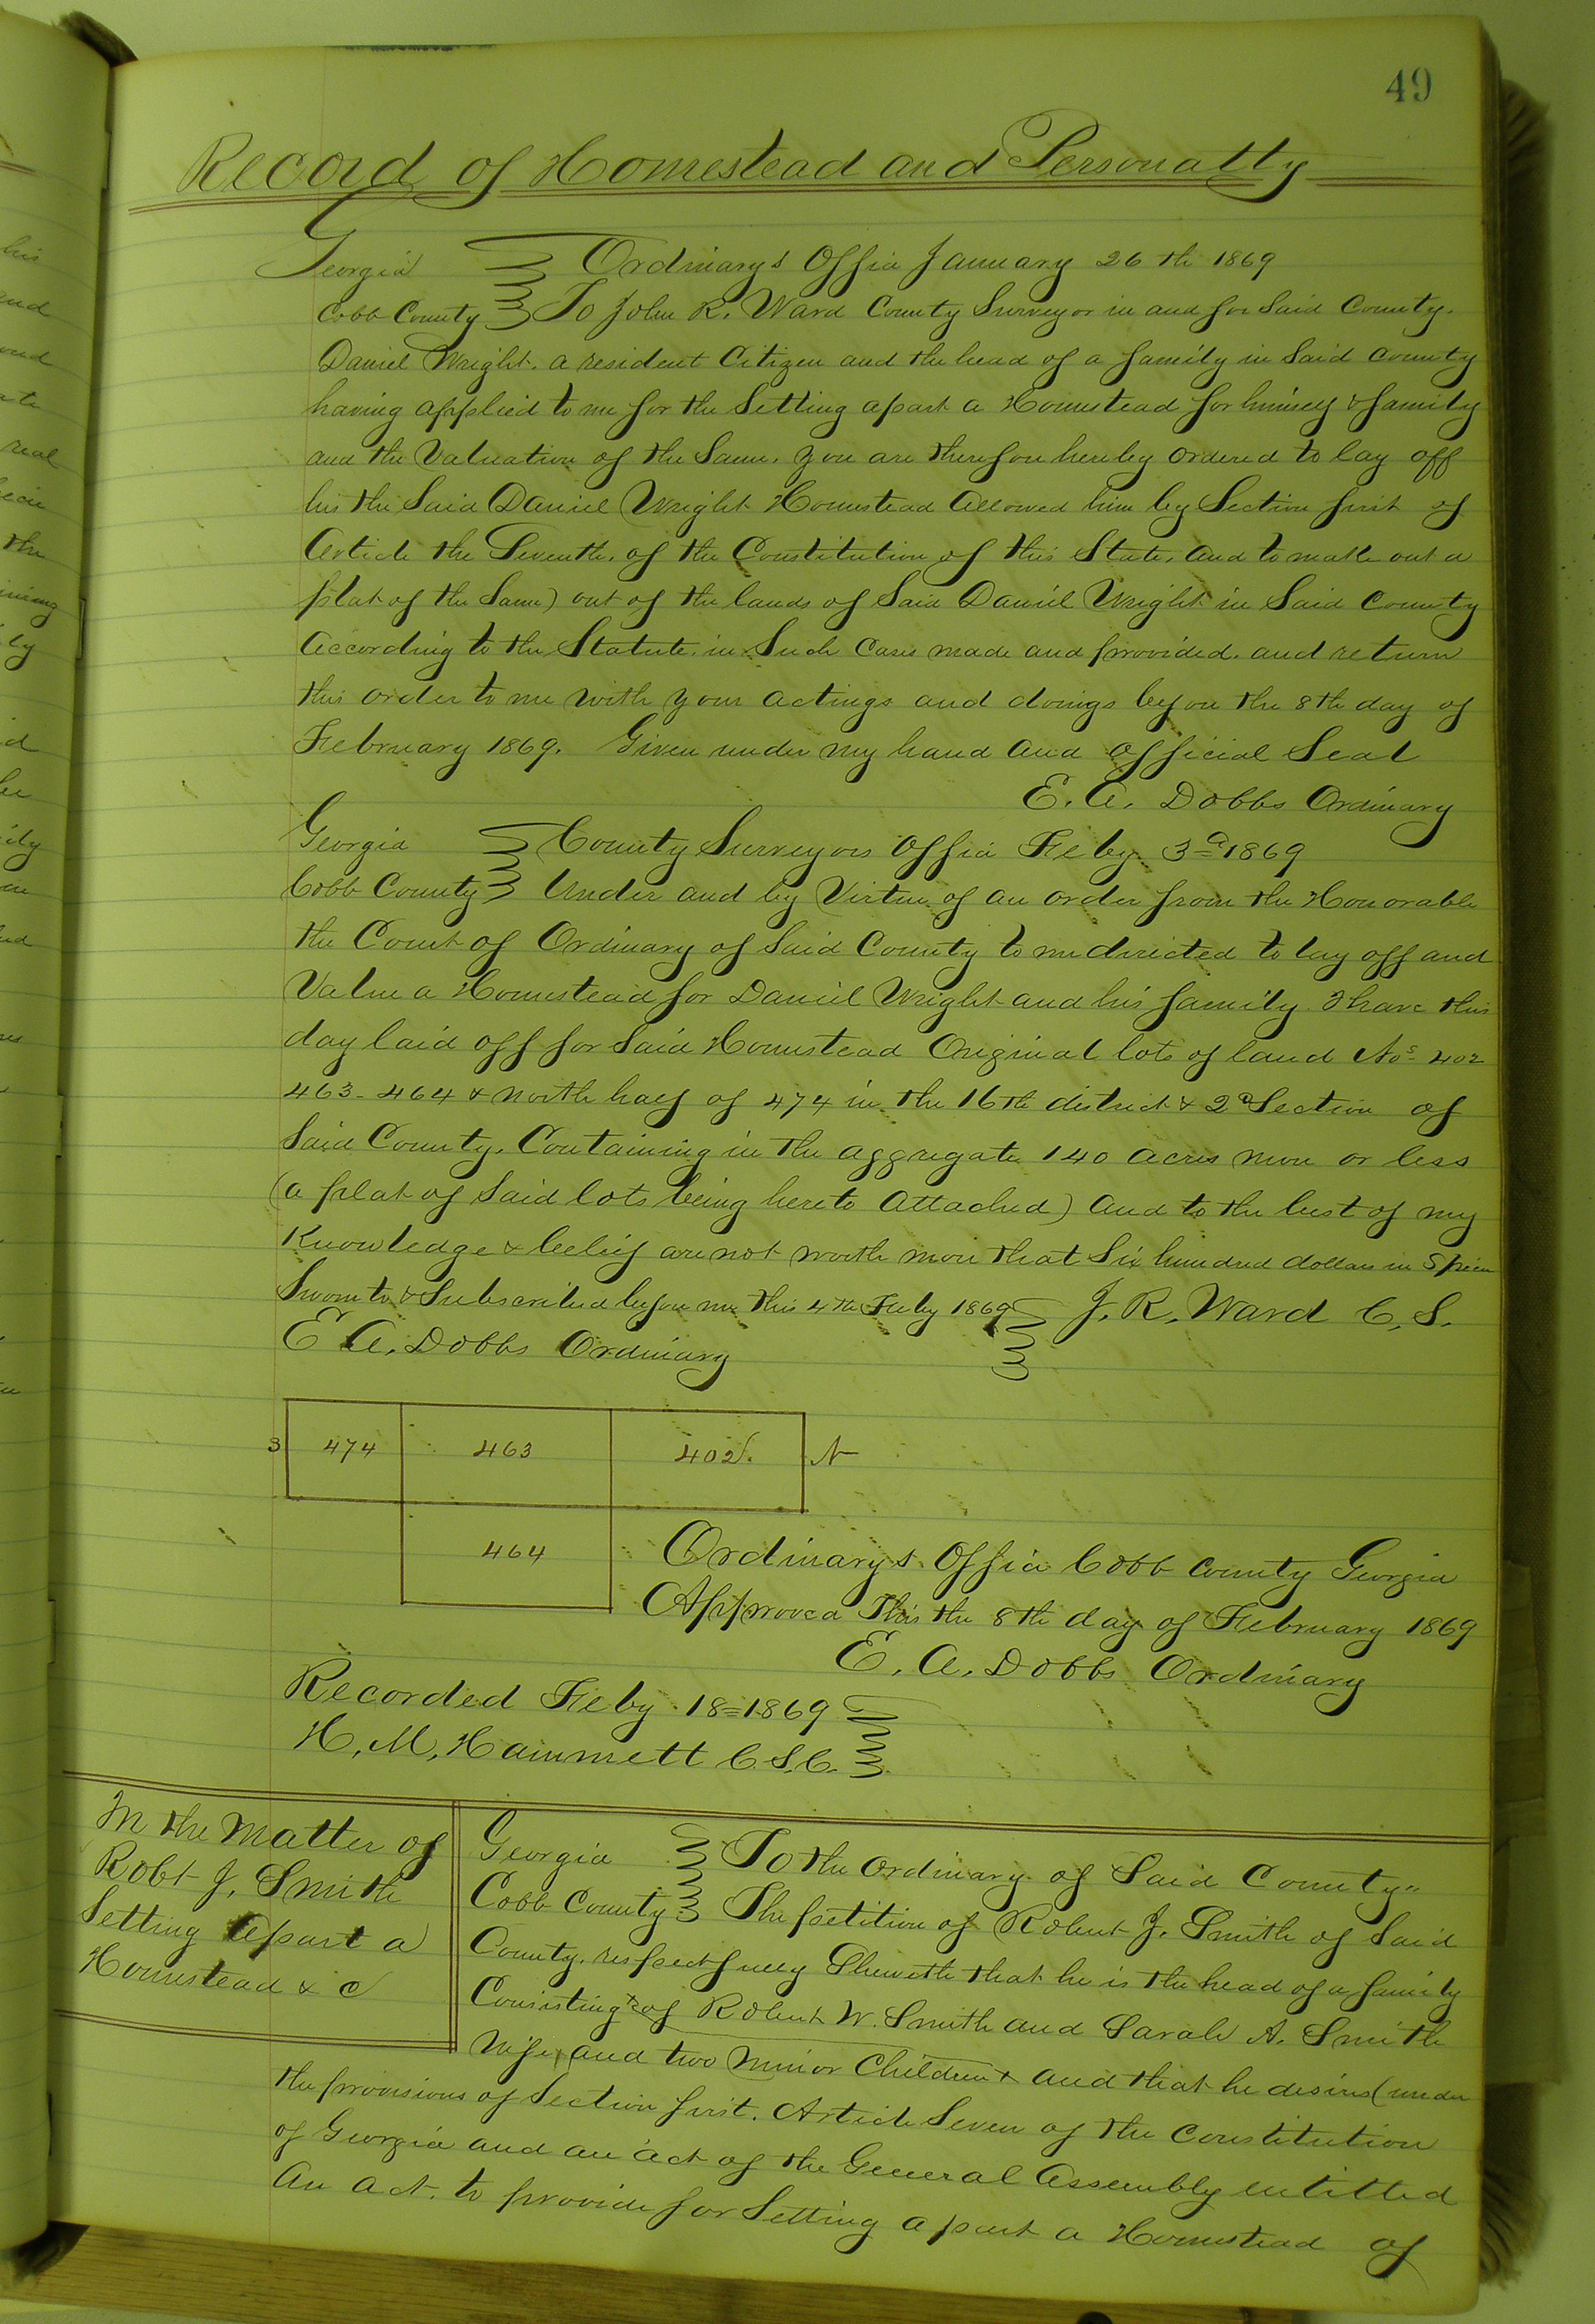 49
Record of Homestead and Personalty
Georgia Ordinarys Office January 26th 1869
Cobb County To John R. Ward County Surveyor in and for Said County.
Daniel Wright. a resident Citizen and the head of a family in Said County
having applied to me for the Setting apart a Homestead for himself & family
and the Valuation of the Same. you are therefore hereby ordered to lay off
his the Said Daniel Wright Homestead Allowed him by Section first of
Article the Seventh. of the Constitution of this State. and to make out a
plat of the Same) out of the lands of Said Daniel Wright in Said County
According to the Statute. in Such Cases made and provided. and return
this order to me with your actings and doings before the 8th day of
February 1869. Given under my hand and official Seal
E. A. Dobbs Ordinary
Georgia County Surveyors Office Feby 3d 1869
Cobb County Under and by Virtue of an order from the Honorable
the Court of Ordinary of Said County to me directed to lay off and
Value a Homestead for Daniel Wright and his family I have this
day laid off for Said Homestead Original lots of land Nos 402
463 - 464 & North half of 474 in the 16th district & 2d Section of
Said County. Containing in the aggregate 140 acres more or less
(a plat of Said lots being hereto Attached) and to the best of my
Knowledge & belief are not worth more that Six hundred dollars in Specie
Sworn to & Subscribed before me this 4th Feby 1869 J. R. Ward C. S.
E A. Dobbs Ordinary
474 463 402 N
464
Ordinarys Office Cobb County Georgia
Approved This the 8th day of February 1869
E. A. Dobbs Ordinary
Recorded Feby 18=1869
H. M. Hammett C. S. C.
In the Matter of
Robt J. Smith
Setting Apart a
Homestead & c
Georgia To the Ordinary of Said County"
Cobb County The petition of Robert J. Smith of Said
County. respectfully Sheweth that he is the head of a family
Consisting of Robert W. Smith and Sarah A. Smith
Wife, and two Minor Children & and that he desires (under
the provisions of Section first. Article Seven of the Constitution
of Georgia and an act of the General Assembly entitled
An act. to provide for Setting apart a Homestead of